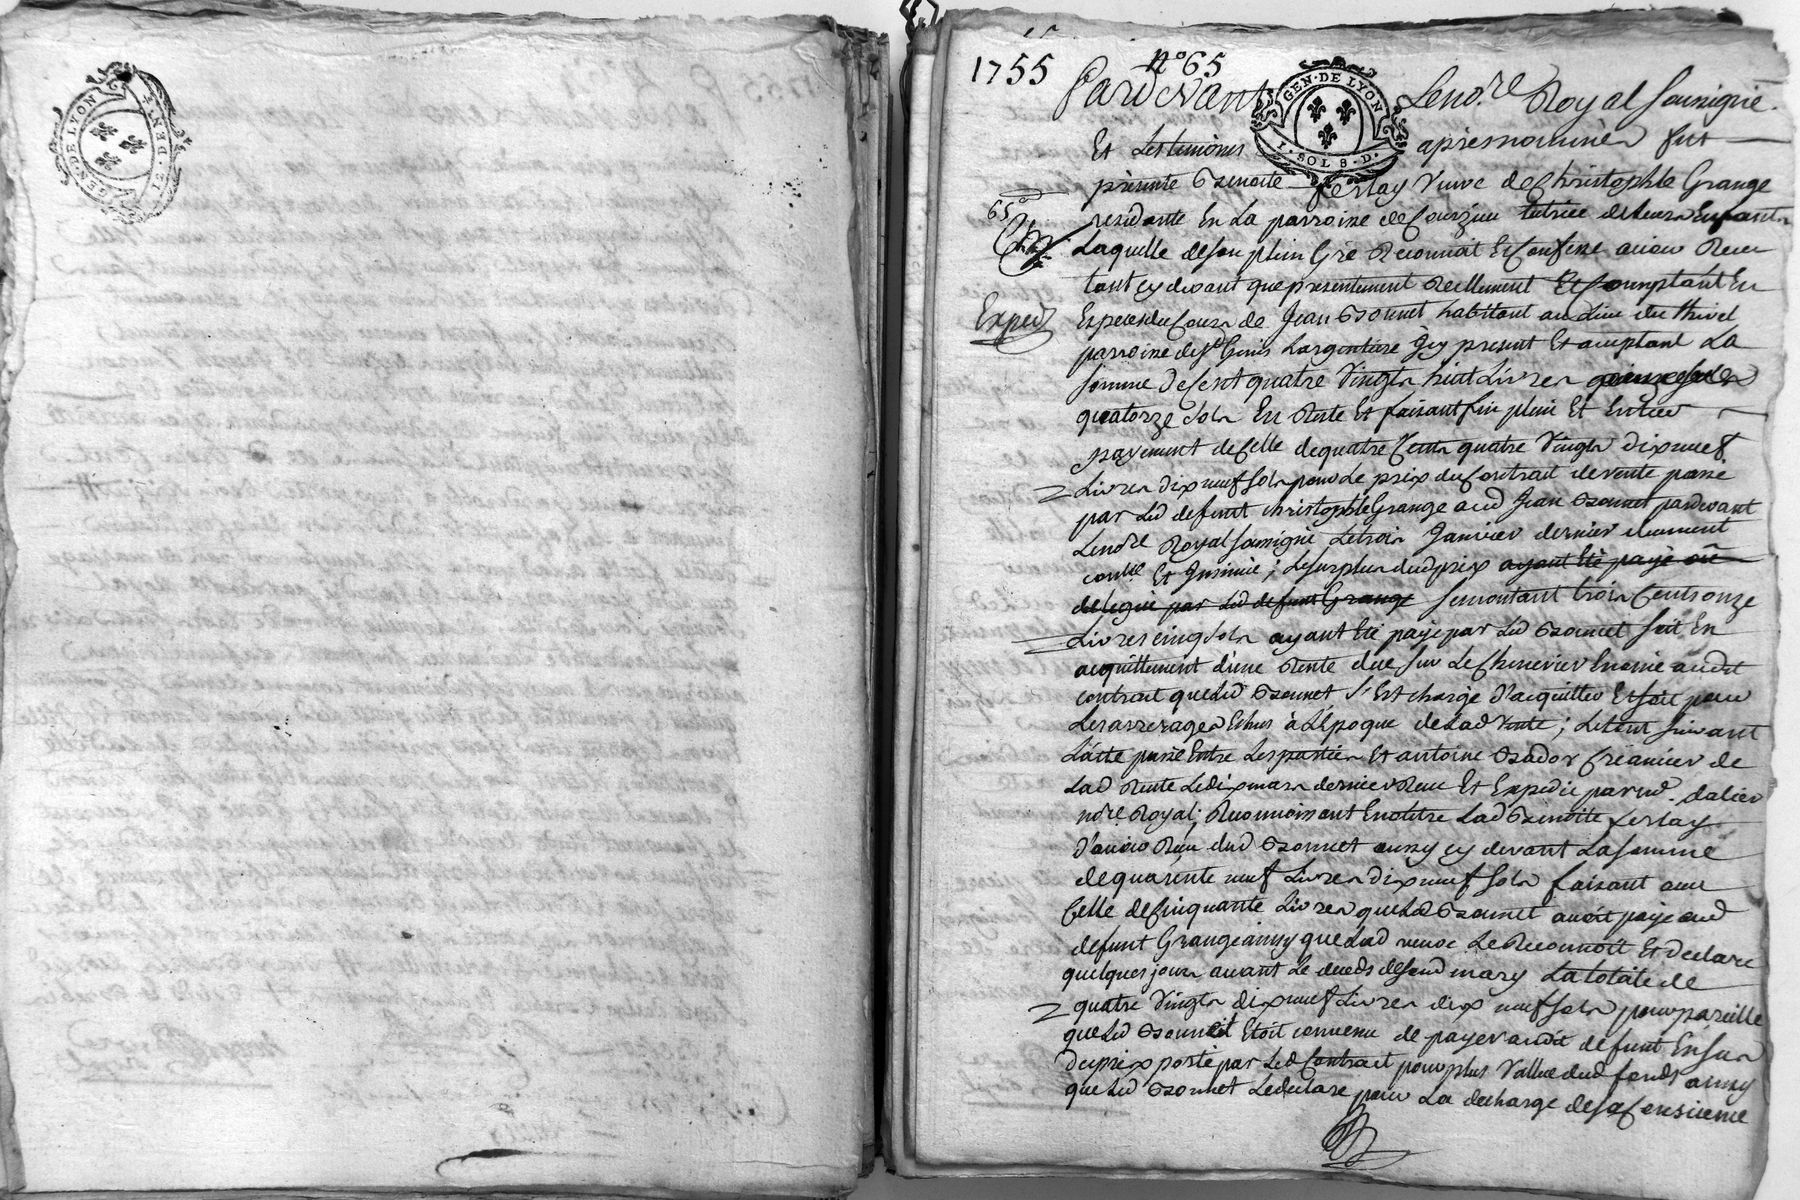 GEN·DE LYON
DEN·ET
1755 n° 65
Pardevant Le no.re Royal soussigné
GEN·DE LYON
1·SOL 8·D·
Et Les temoins apres nommés fut
presente Benoite ferlay veuve de Christophle Grange
65
residante En La parroisse de Courzieu tutrice de leurs Enfants
Laquelle de son plein Gré Reconnoit Et Confesse avoir Receu
tant cy devant que presentement Reellement Et Comptant En
Exped
Especes du Cours de Jean Bonnet habitant au Lieu du thivel
parroisse de st Genis Largentiere Icy present Et aceptant La
somme de Cent quatre vingts huit Livres
quatorze sols En Reste Et faisant fin plein Et Entier
payement de Celle de quatre Cents quatre vingts dix neuf
Livres dix neuf sols pour Le prix du Contrait de vente passé
par Led defunt christophle Grange aud Jean Bonnet pardevant
Le no.re Royal soussigné Le trois Janvier dernier duement
conllé Et Insinué ; Le surplus dud prix ayant Eté payé ou
delegué par Led defunt Grange se montant trois Cents onze
Livres cinq sols ayant Eté payé par Led Bonnet soit En
acquittement d'une Rente due sur Le Chenevier Enoncé audit
contrait que Led Bonnet s'Est chargé d'acquitter Et soit pour
Les arrerages Echus à L'Epoque de Lad vente ; Le tout suivant
L'acte passé Entre Les parties Et antoine Bador Créancier de
Lad Rente Le dix mars dernier Receu Et Expedié par me. dalier
no.re Royal ; Reconnoissant En outre Lad Benoite ferlay
d'avoir Receu dud Bonnet aussy cy devant La somme
de quarente neuf Livres dix neuf sols faisant avec
Celle de Cinquante Livres que Led Bonnet avoit payé aud
defunt Grange ainsy que Lad veuve Le Reconnoit Et declare
quelques jours avant Le decéds de son d mary La totalité de
quatre vingts dix neuf Livres dix neuf sols pour pareille
que Led Bonnet Etoit convenu de payer audit defunt En sus
du prix porté par Led Contrait pour plus vallue dud fonds ainsy
que Led Bonnet Le declare pour La decharge de sa Consience